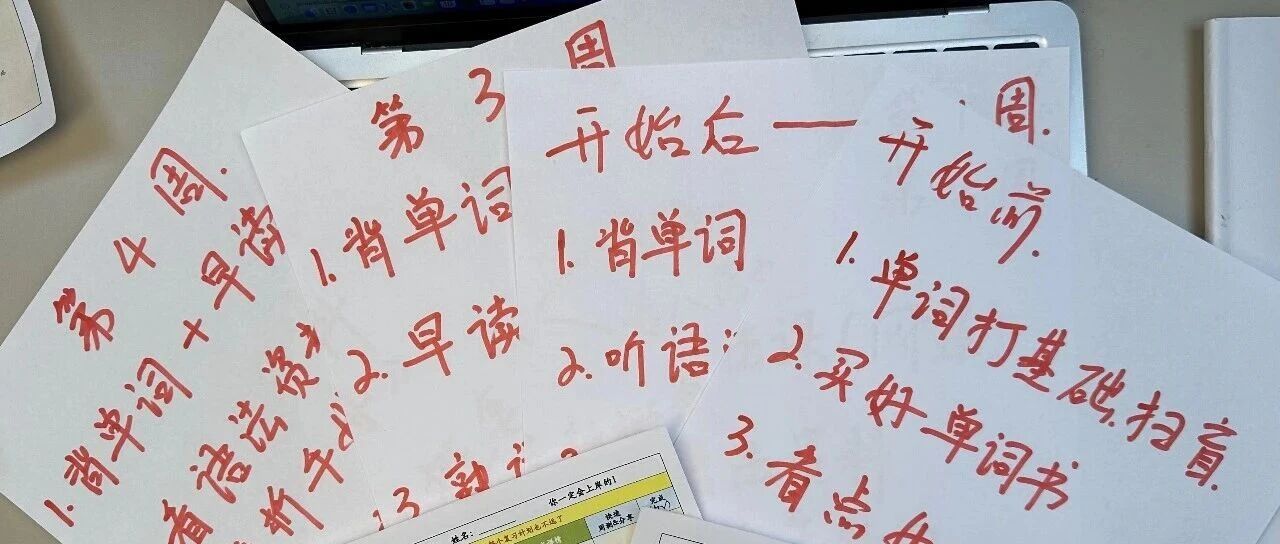 第4周.
1. 背单词 + 早读
看语法资
析
第3周
1. 背单词
2. 早读
3 熟
开始后——
周.
1. 背单词
2. 听语
开始前.
1. 单词打基础.扫盲.
2. 买好单词书
3. 看点
你一定会上岸的!
姓名:
复习计划也不迟了
快速
完成